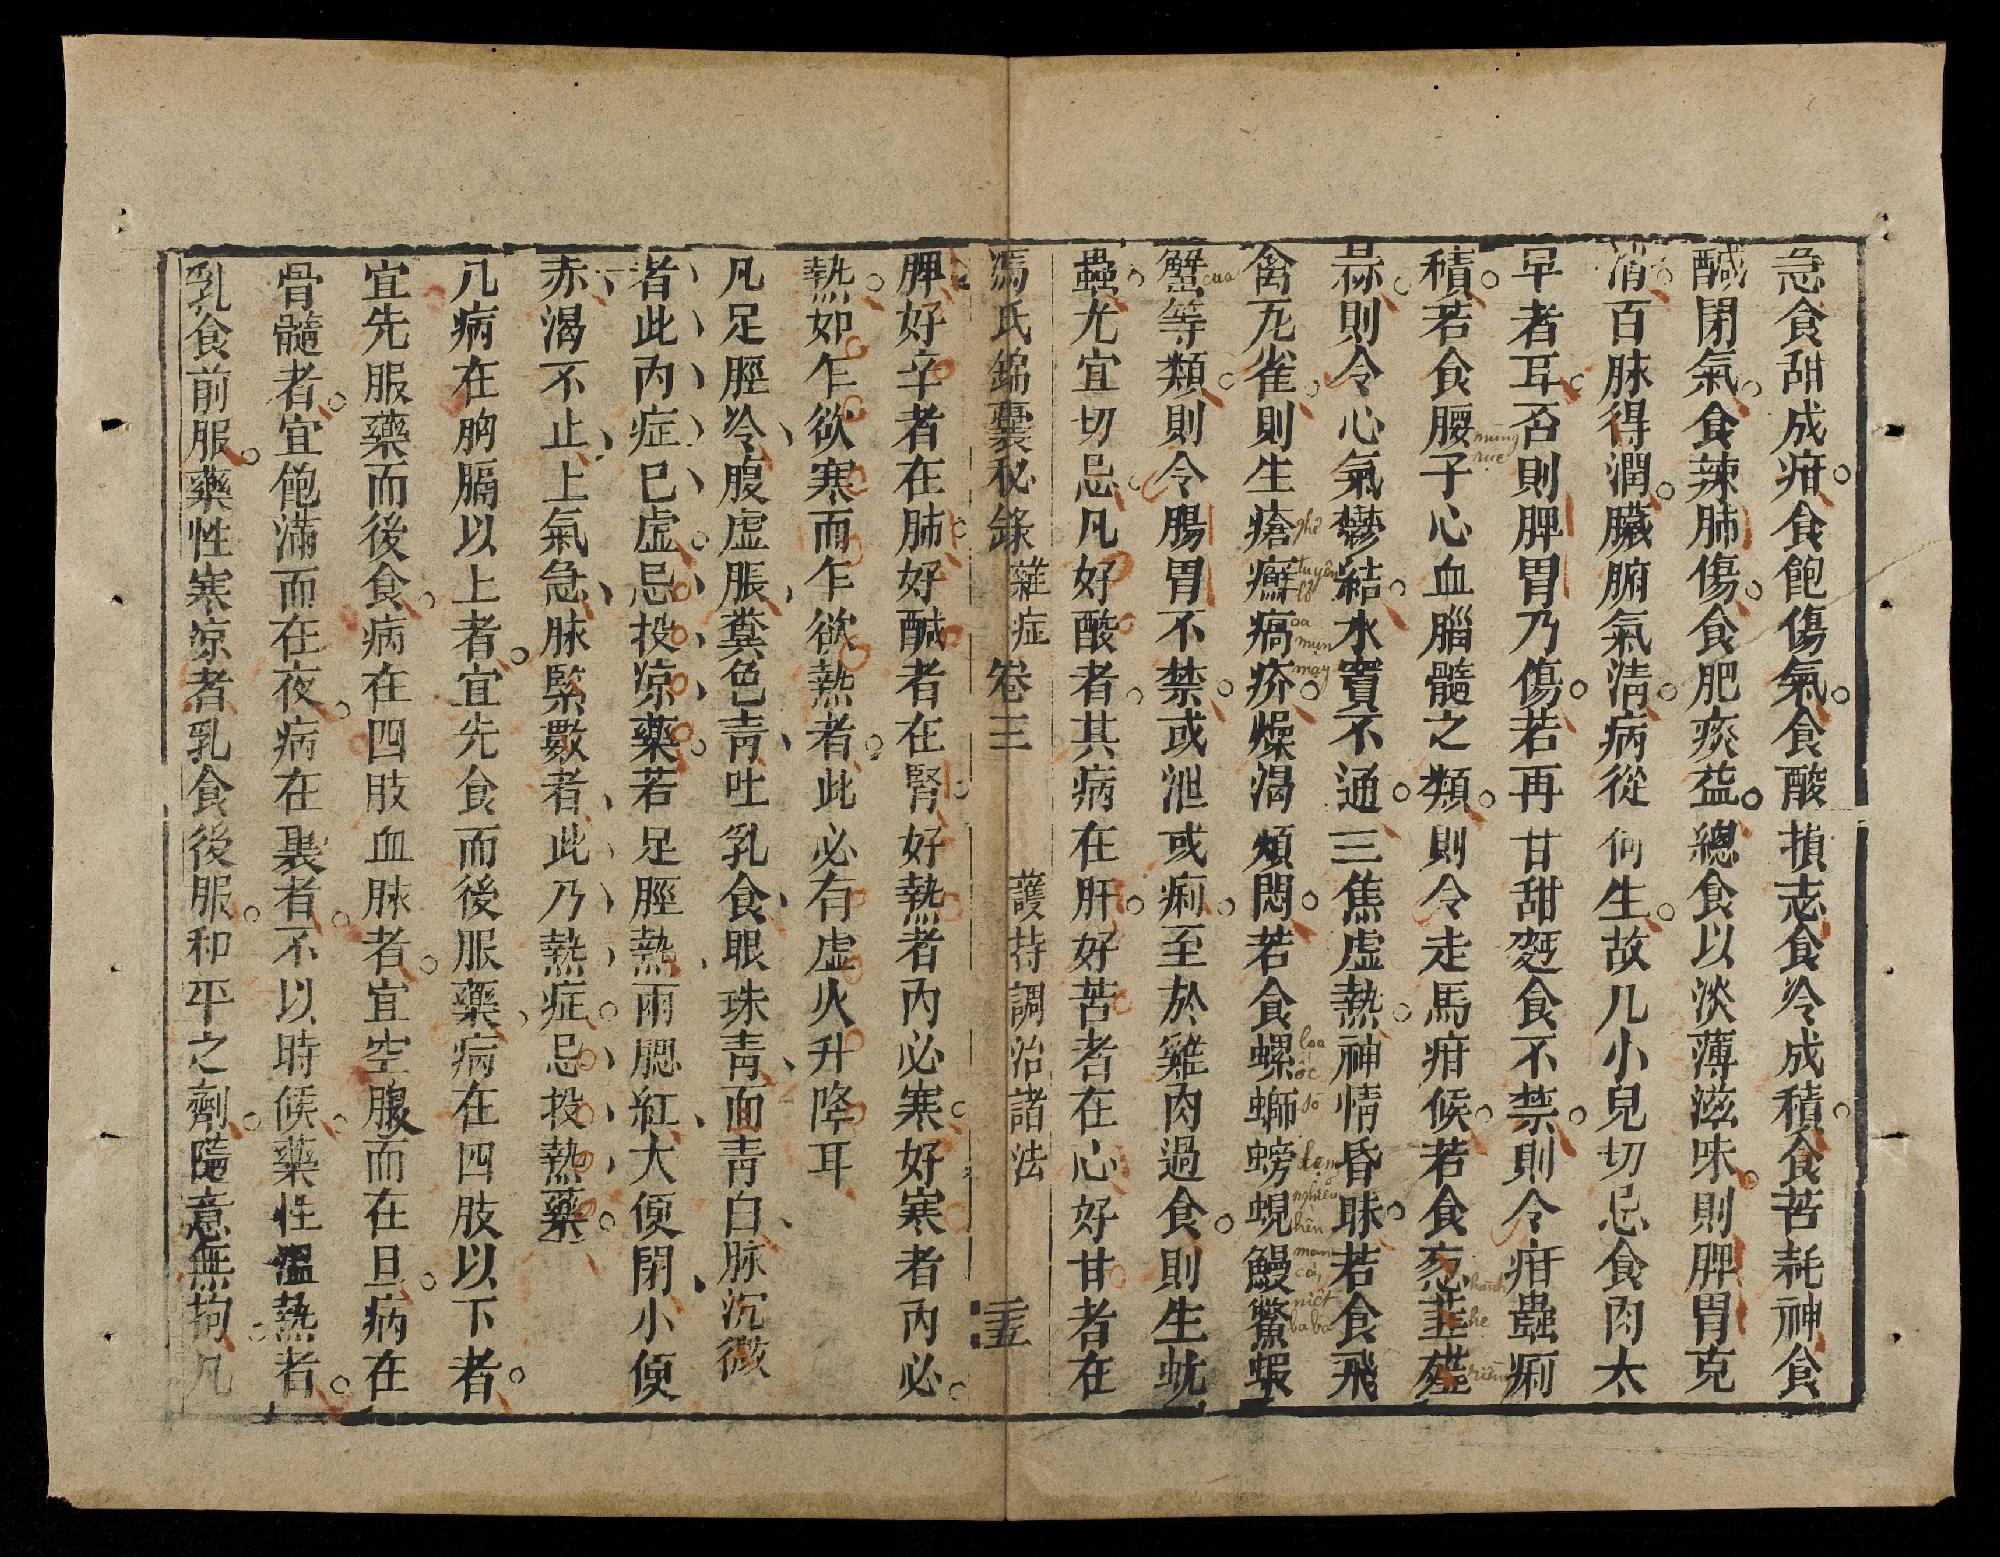 急食甜成疳食飽傷氣食酸損志食冷成積食苦耗神食
醎閉氣食辣肺傷食肥痰益總食以淡薄滋味則脾胃克
消百脉得潤臟腑氣淸病從何生故凡小兒切忌食肉太
早者耳否則脾胃乃傷若再甘甜麪食不禁則令疳蟲痢
積若食腰子心血腦髓之類則令走馬疳候若食葱韮薤
蒜則令心氣鬱結水竇不通三焦虛熱神情昏昧若食飛
禽瓦雀則生瘡癬癘疥燥渴煩悶若食螺螄螃蜆鰻鱉蝦
蟹等類則令腸胃不禁或泄或痢至於雞肉過食則生蚘
蟲尤宜切忌凡好酸者其病在肝好苦者在心好甘者在
馮氏錦囊秘錄 雜症 卷三 護持調治諸法
脾好辛者在肺好醎者在腎好熱者內必寒好寒者內必
熱如乍欲寒而乍欲熱者此必有虛火升降耳
凡足脛冷腹虛脹糞色靑吐乳食眼珠靑面靑白脉沉微
者此內症巳虛忌投凉藥若足脛熱兩腮紅大便閉小便
赤渴不止上氣急脉緊數者此乃熱症忌投熱藥
凡病在胸膈以上者宜先食而後服藥病在四肢以下者
宜先服藥而後食病在四肢血脉者宜空腹而在旦病在
骨髓者宜飽滿而在夜病在裏者不以時候藥性溫熱者
乳食前服藥性寒凉者乳食後服和平之劑隨意無拘凡
cua
mùng
ghẻ
hành
hẹ
riềng